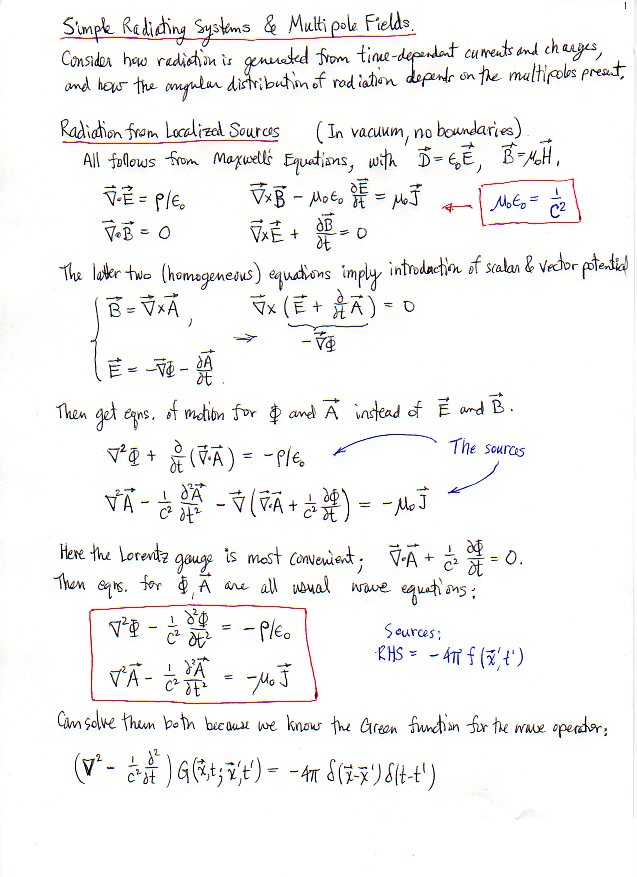 1
Simple Radiating Systems & Multipole Fields.
Consider how radiation is generated from time-dependent currents and charges,
and how the angular distribution of radiation depends on the multipoles present.
Radiation from Localized Sources (In vacuum, no boundaries)
All follows from Maxwell's Equations, with D⃗ = ε₀E⃗, B⃗ = μ₀H⃗.
∇⃗·E⃗ = ρ/ε₀ ∇⃗×B⃗ - μ₀ε₀ ∂E⃗/∂t = μ₀J⃗ ← μ₀ε₀ = 1/c²
∇⃗·B⃗ = 0 ∇⃗×E⃗ + ∂B⃗/∂t = 0
The latter two (homogeneous) equations imply introduction of scalar & vector potential
B⃗ = ∇⃗×A⃗, ∇⃗×(E⃗ + ∂/∂t A⃗) = 0
⇒ -∇⃗Φ
E⃗ = -∇⃗Φ - ∂A⃗/∂t.
Then get eqns. of motion for Φ and A⃗ instead of E⃗ and B⃗.
∇²Φ + ∂/∂t (∇⃗·A⃗) = -ρ/ε₀ The sources
∇²A⃗ - 1/c² ∂²A⃗/∂t² - ∇⃗(∇⃗·A⃗ + 1/c² ∂Φ/∂t) = -μ₀J⃗
Here the Lorentz gauge is most convenient; ∇⃗·A⃗ + 1/c² ∂Φ/∂t = 0.
Then eqns. for Φ, A⃗ are all usual wave equations:
∇²Φ - 1/c² ∂²Φ/∂t² = -ρ/ε₀ Sources:
∇²A⃗ - 1/c² ∂²A⃗/∂t² = -μ₀J⃗ RHS = -4π f(x⃗',t')
Can solve them both because we know the Green function for the wave operator:
(∇² - 1/c² ∂²/∂t) G(x⃗,t; x⃗',t') = -4π δ(x⃗-x⃗') δ(t-t')